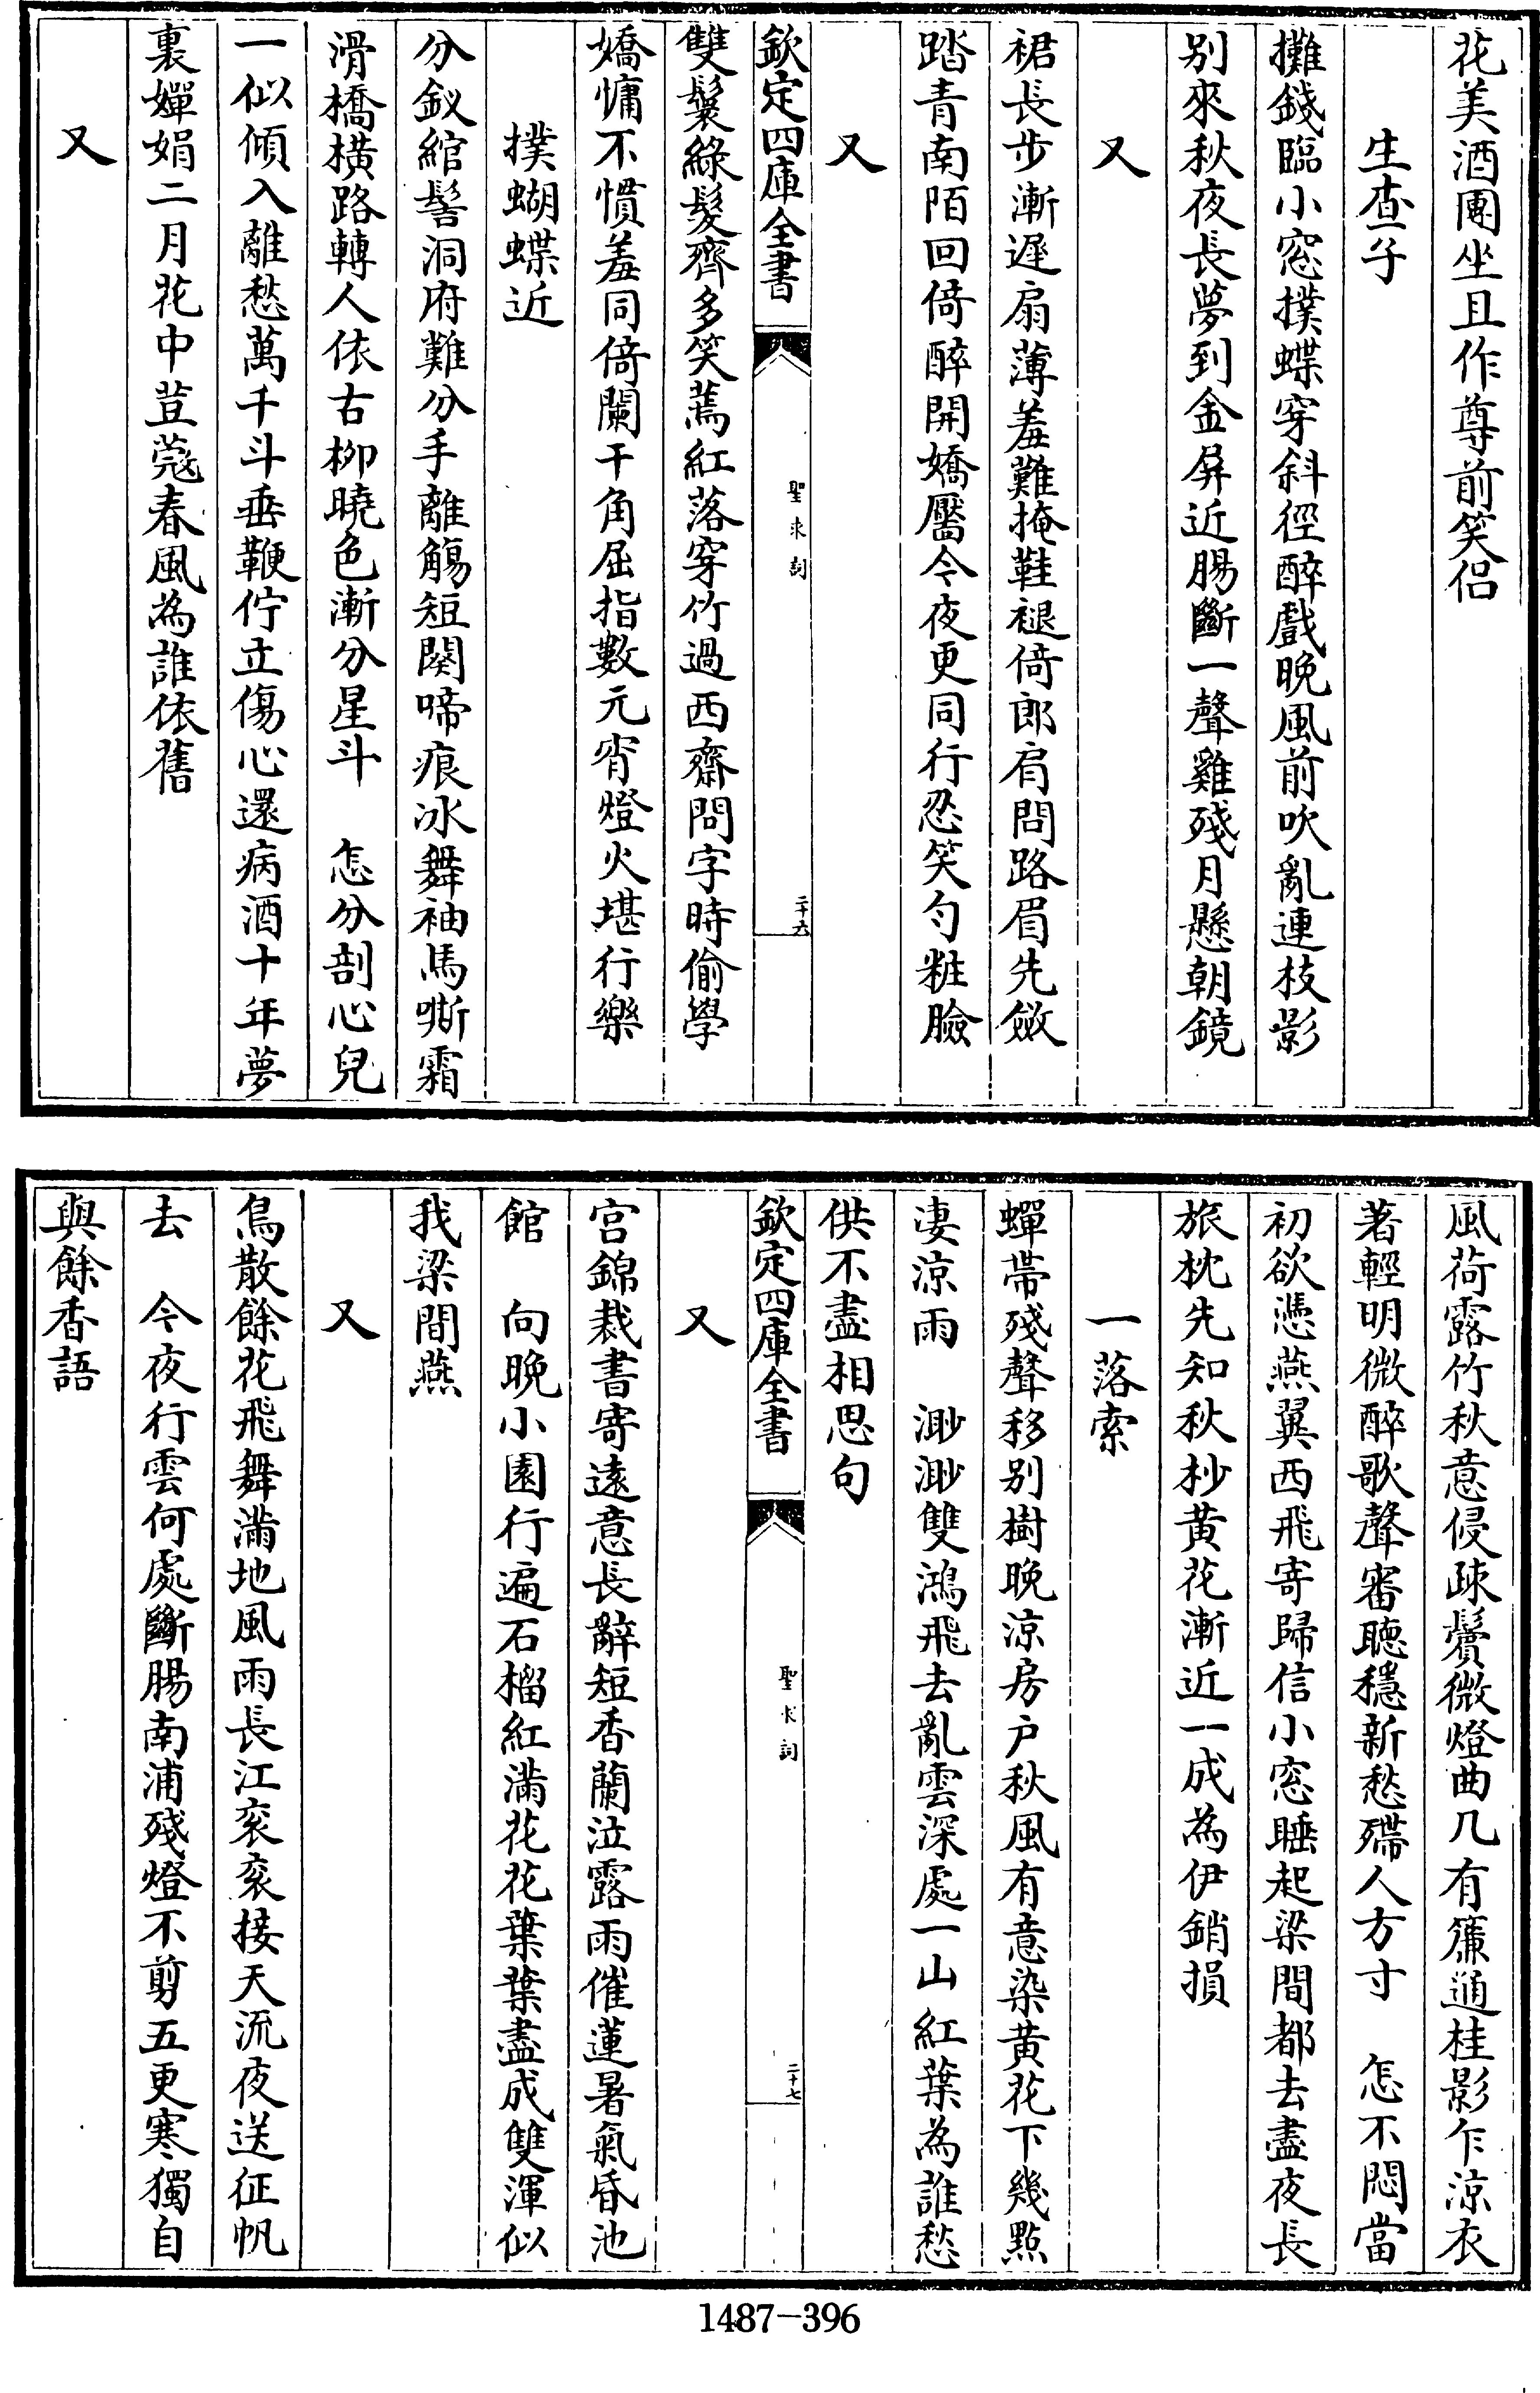 花美酒團坐且作尊前笑侣
生查子
攤錢臨小窓撲蝶穿斜徑醉戲晚風前吹亂連枝影
别來秋夜長夢到金屏近腸斷一聲雞殘月懸朝鏡
又
裙長步漸遲扇薄羞難掩鞋褪倚郎肩問路眉先斂
踏青南陌回倚醉開嬌靨今夜更同行忍笑勻粧臉
又
欽定四庫全書
聖求詞
二十六
雙鬟綠髮齊多笑蔫紅落穿竹過西齋問字時偷學
嬌慵不慣羞同倚闌干角屈指數元宵燈火堪行樂
撲蝴蝶近
分釵綰髻洞府難分手離觴短闋啼痕冰舞袖馬嘶霜
滑橋橫路轉人依古柳曉色漸分星斗　怎分剖心兒
一似傾入離愁萬千斗垂鞭佇立傷心還病酒十年夢
裏嬋娟二月花中荳蔻春風為誰依舊
又
風荷露竹秋意侵疎鬢微燈曲几有簾通桂影乍涼衣
著輕明微醉歌聲審聽穩新愁殢人方寸　怎不悶當
初欲憑燕翼西飛寄歸信小窓睡起梁間都去盡夜長
旅枕先知秋杪黄花漸近一成為伊銷損
一落索
蟬帶殘聲移别樹晚涼房户秋風有意染黄花下幾點
淒涼雨　渺渺雙鴻飛去亂雲深處一山紅葉為誰愁
供不盡相思句
欽定四庫全書
聖求詞
二十七
又
宫錦裁書寄遠意長辭短香蘭泣露雨催蓮暑氣昏池
館　向晚小園行遍石榴紅滿花花葉葉盡成雙渾似
我梁間燕
又
鳥散餘花飛舞滿地風雨長江衮衮接天流夜送征帆
去　今夜行雲何處斷腸南浦殘燈不剪五更寒獨自
與餘香語
1487-396